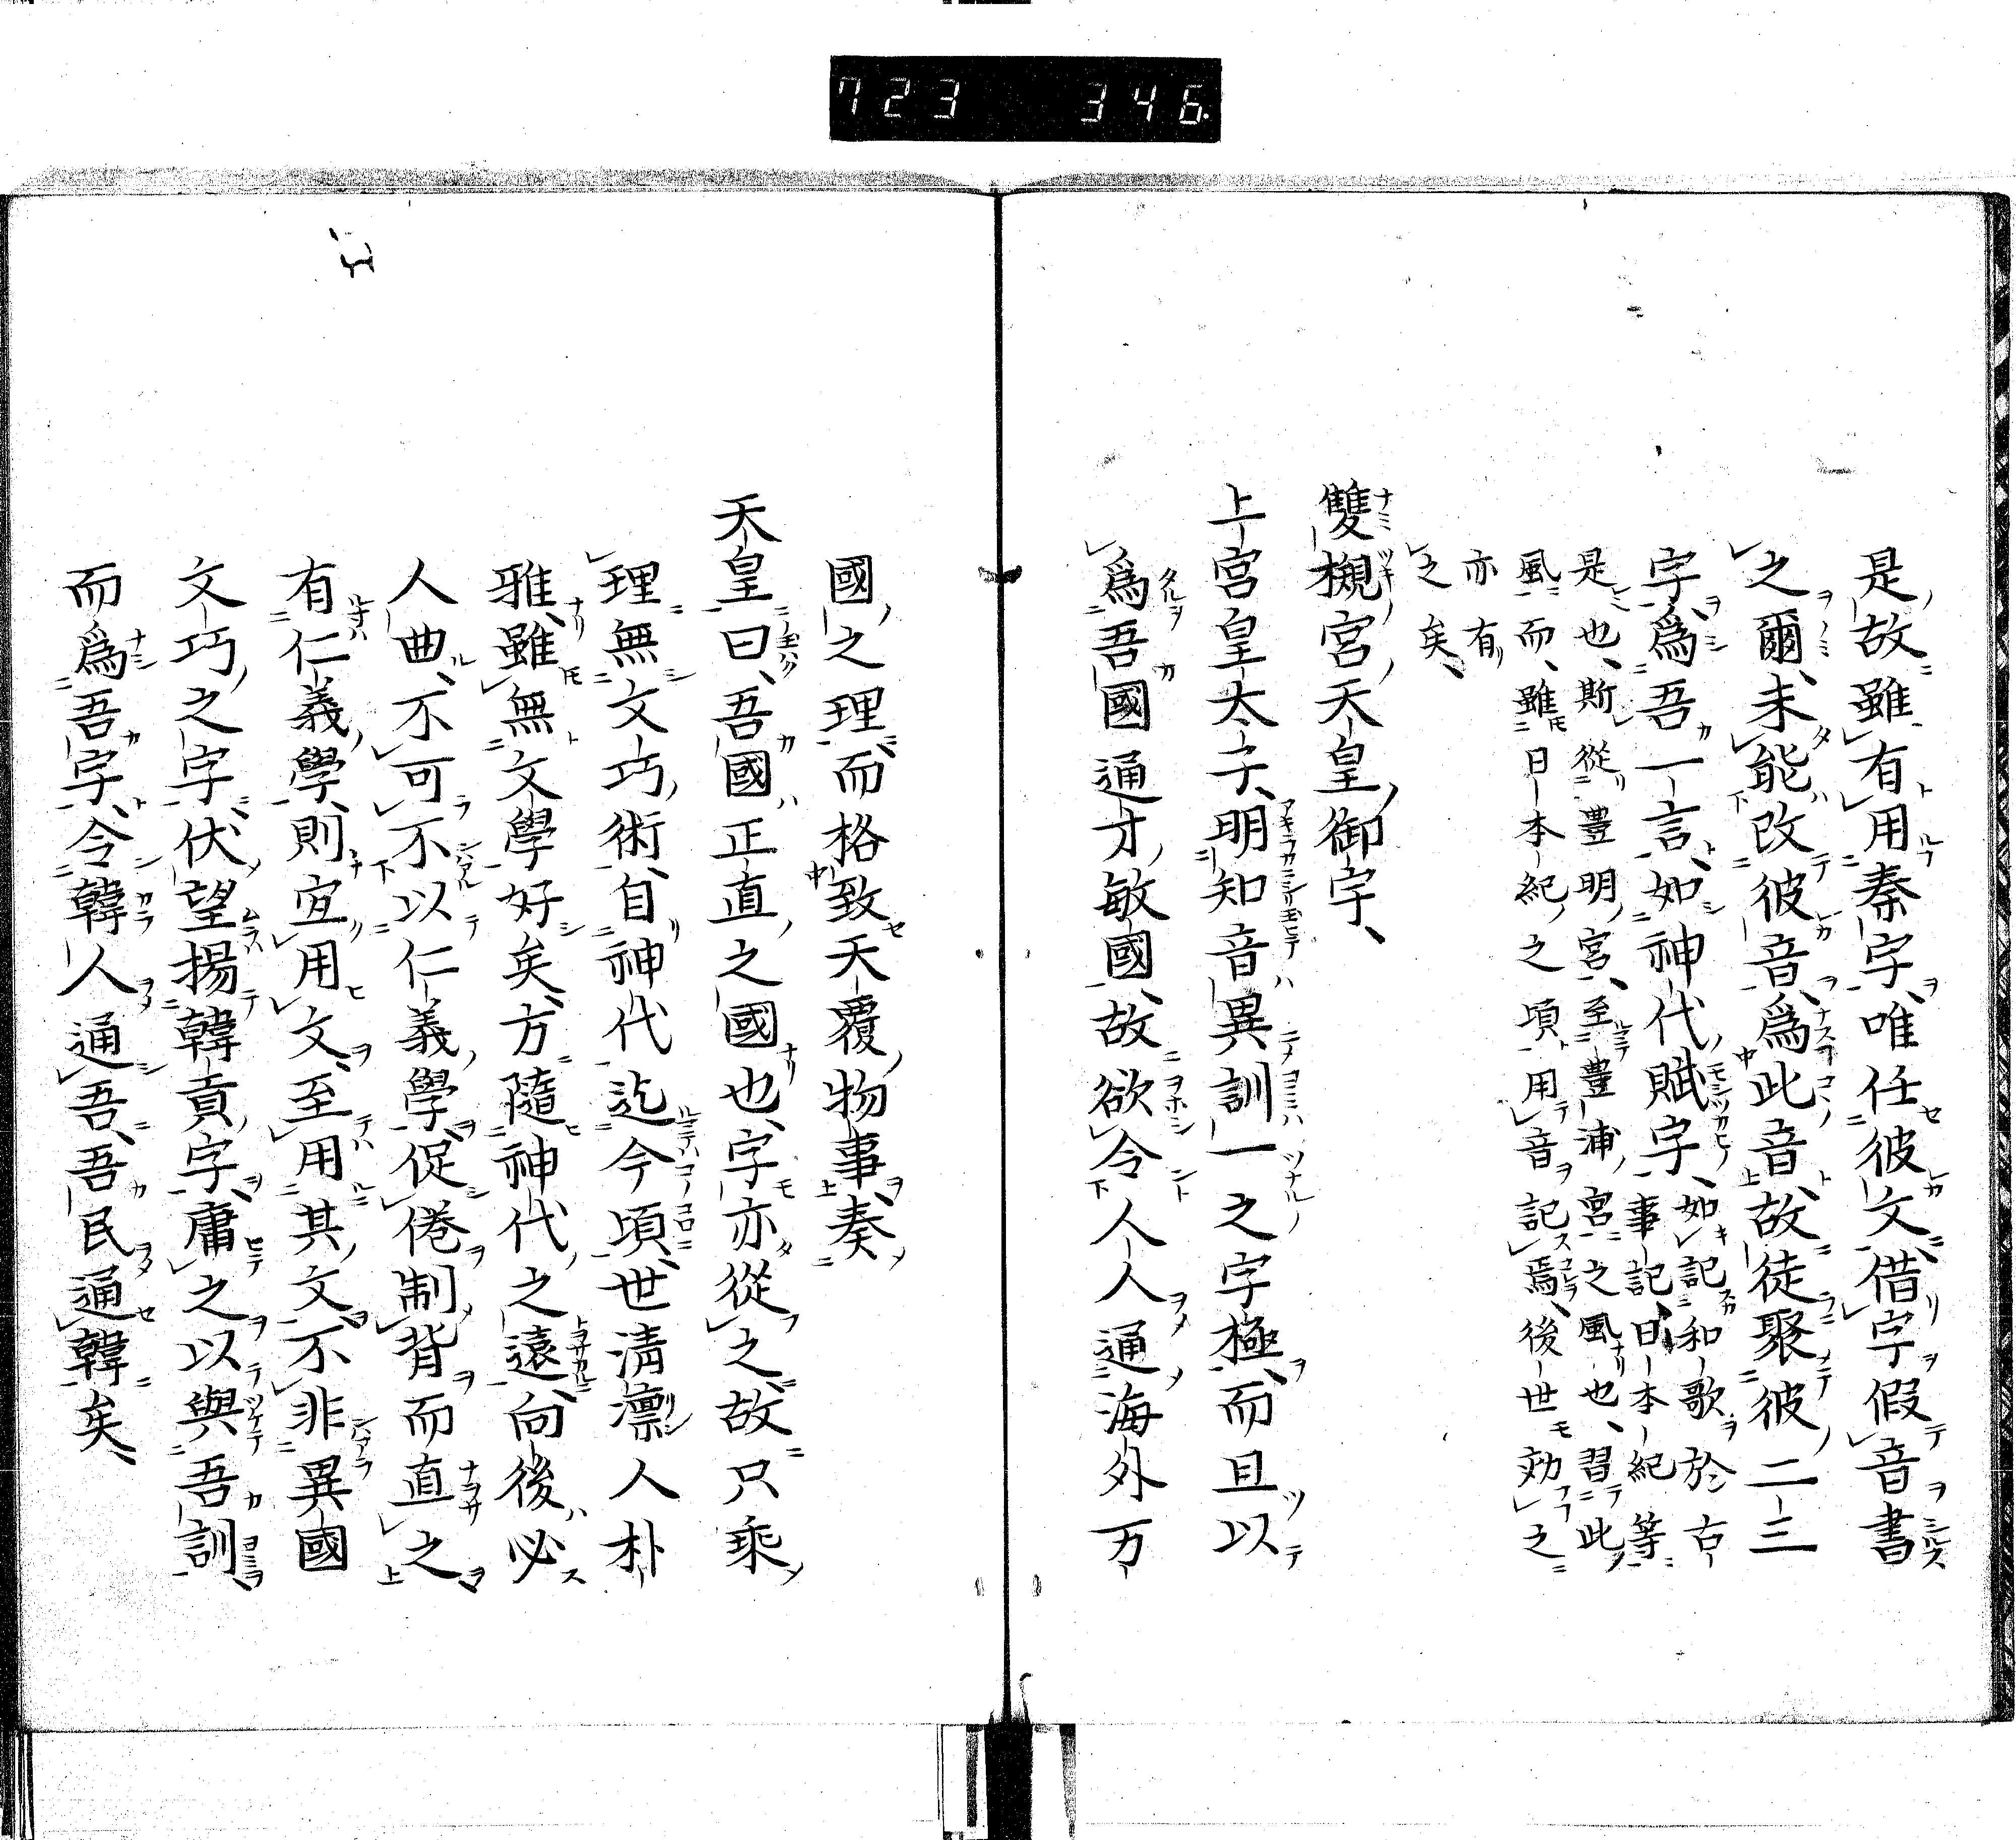 723 346.
是故雖有用秦字、唯任彼文、借字假音書
之爾、未能改彼音、爲此音、故徒聚彼二三
字、爲吾一言、如神代賦字、如記和歌於古
事記、日本紀等
是也、斯從豊明宮、至豊浦宮之風也、習此
風而、雖日本紀之頃、用音記焉、後世効之
亦有
之矣、
雙槻宮天皇御宇、
上宮皇太子、明知音異訓一之字極、而且以
爲吾國通才敏國、故欲令人人通海外万
國之理、而格致天覆物事、奏
天皇曰、吾國正直之國也、字亦從之、故只乘
理無文巧術、自神代迄今頃、世淸凛人朴
雅、雖無文學好矣、方隨神代之遠、向後必
人曲、不可不以仁義學、促倦制背而直之
有仁義學、則宜用文、至用其文、不非異國
文巧之字、伏望揚韓貢字、庸之以與吾訓
而爲吾字、令韓人通吾、吾民通韓矣、